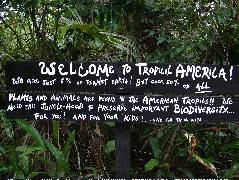 WELCOME TO TROPICAL AMERICA!
WE ARE JUST 6% OF PLANET EARTH! BUT OVER 50% OF ALL
PLANTS AND ANIMALS ARE FOUND IN THE AMERICAN TROPICS!! WE
NEED THE JUNGLE-HOOD TO PRESERVE IMPORTANT BIODIVERSITY...
FOR YOU! AND FOR YOUR KIDS!...